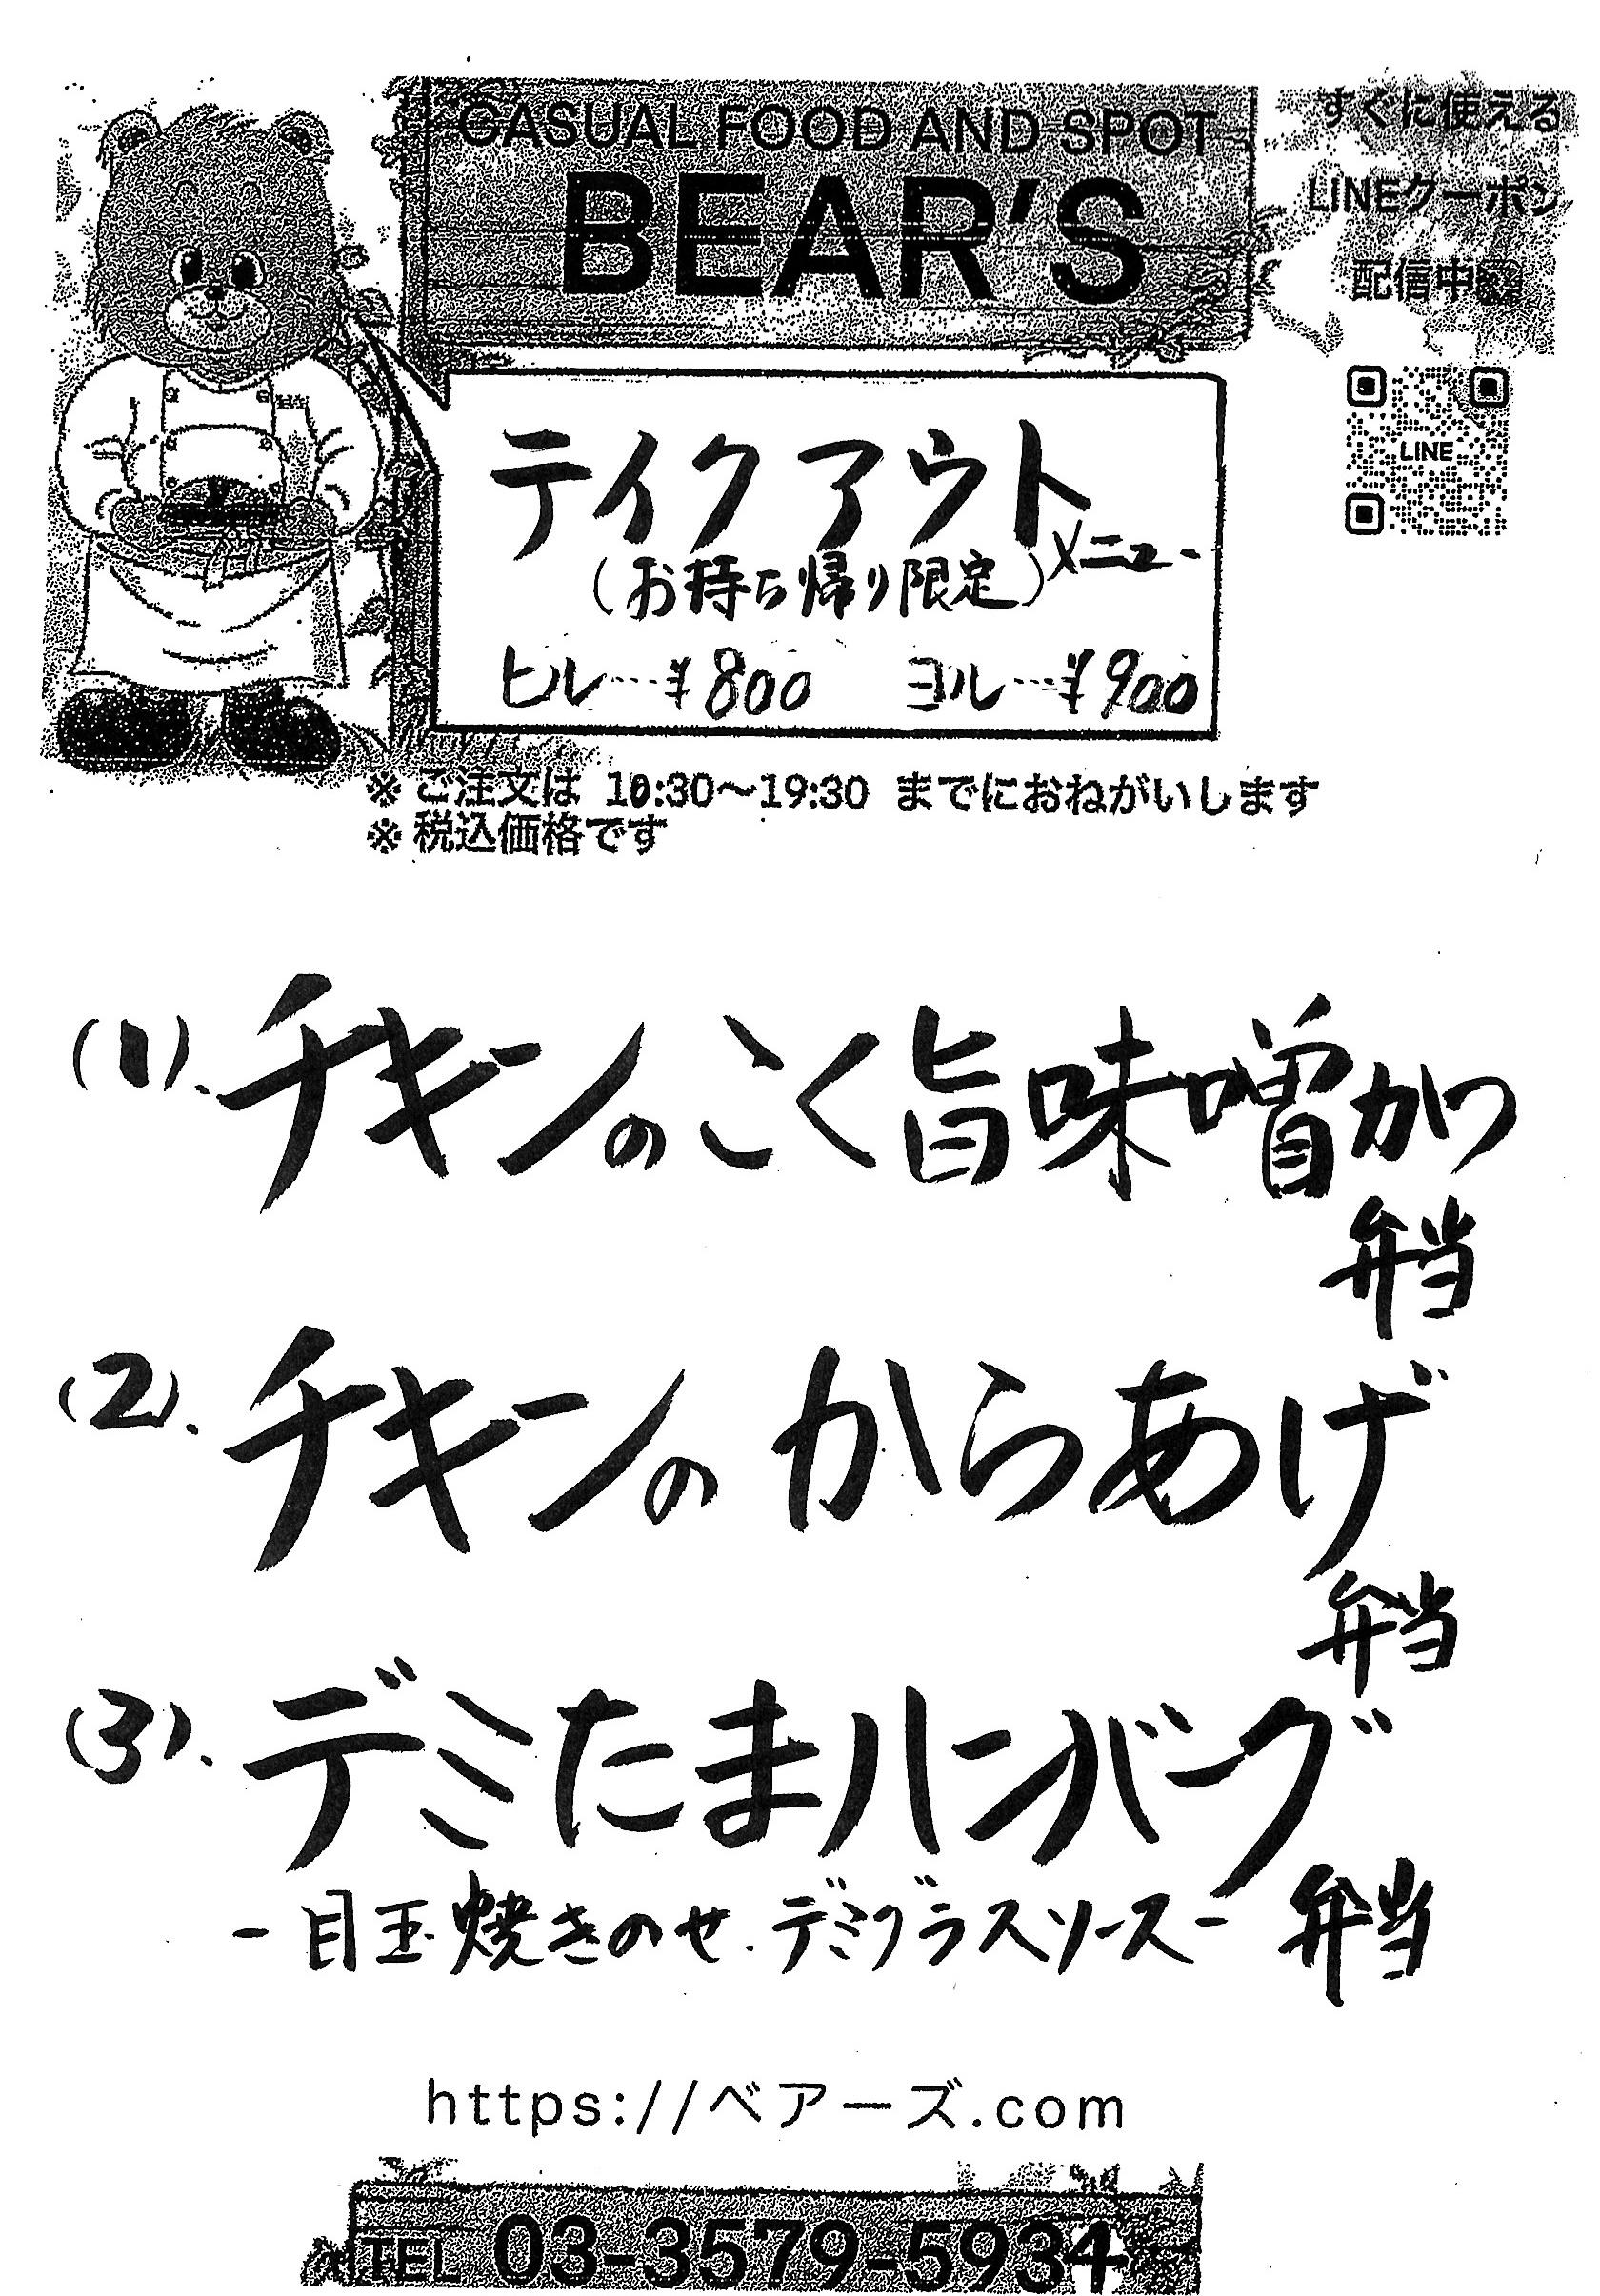 CASUAL FOOD AND SPOT
BEAR'S
すぐに使える
LINEクーポン
配信中
LINE
テイクアウトメニュー
(お持ち帰り限定)
ヒル…¥800 ヨル…¥900
※ ご注文は 10:30～19:30 までにおねがいします
※ 税込価格です
(1).チキンのこく旨味噌カツ
弁当
(2).チキンのからあげ
弁当
(3).デミたまハンバーグ
-目玉焼きのせ.デミグラスソース- 弁当
https://ベアーズ.com
TEL 03-3579-5934